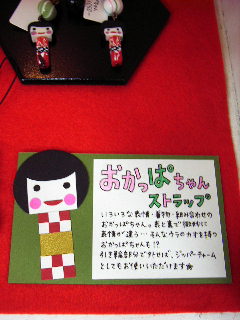 おかっぱちゃん
ストラップ
いろいろな表情・着物・組み合わせの
おかっぱちゃん。表と裏で
表情が違う… そんなウラのカオを持つ
おかっぱちゃんも!?
引き輪部分で外せば、ジッパーチャーム
としてもお使いいただけます